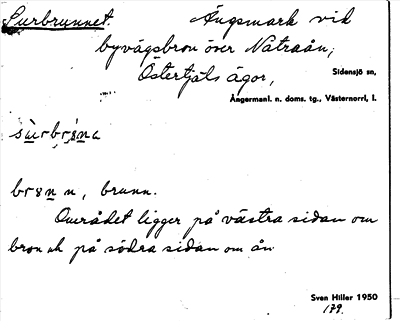 Surbrunnet. Ängsmark vid
byvägsbron över Natraån,
Östertjäls ägor,
Sidensjö sn,
Ångermanl. n. doms. tg., Västernorrl. l.
brɞn n, brunn.
Området ligger på västra sidan om
bron och på södra sidan om ån
Sven Hiller 1950
179.